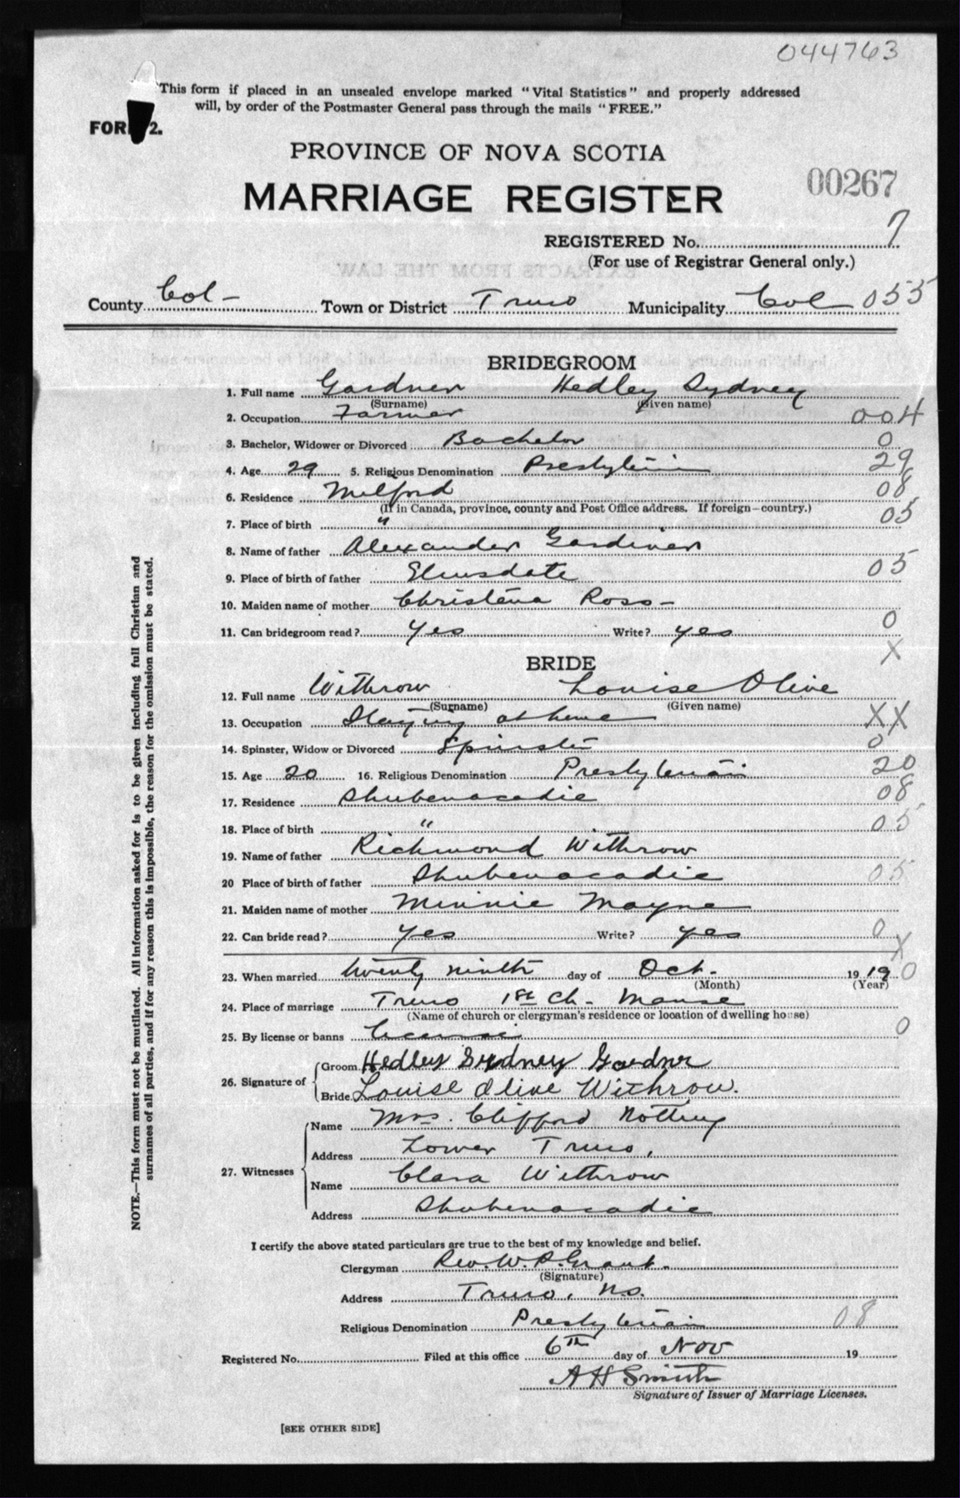 044763
This form if placed in an unsealed envelope marked "Vital Statistics" and properly addressed
will, by order of the Postmaster General pass through the mails "FREE."
FOR 2.
PROVINCE OF NOVA SCOTIA
00267
MARRIAGE REGISTER
REGISTERED No. 7
(For use of Registrar General only.)
County Col- Town or District Truro Municipality Col 055
BRIDEGROOM
1. Full name Gardner Hedley Sydney
(Surname) (Given name)
2. Occupation Farmer 004
3. Bachelor, Widower or Divorced Bachelor 0
4. Age 29 5. Religious Denomination Presbyterian 29
6. Residence Milford 08
(If in Canada, province, county and Post Office address. If foreign—country.)
7. Place of birth " 05
8. Name of father Alexander Gardiner
9. Place of birth of father Elmsdale 05
10. Maiden name of mother Christena Ross-
11. Can bridegroom read? Yes Write? yes 0
BRIDE X
12. Full name Withrow Louise Olive
(Surname) (Given name)
13. Occupation Staying at home XX
14. Spinster, Widow or Divorced Spinster 0
15. Age 20 16. Religious Denomination Presbyterian 20
17. Residence Shubenacadie 08
18. Place of birth " 05
19. Name of father Richmond Withrow
20 Place of birth of father Shubenacadie 05
21. Maiden name of mother Minnie Mayne
22. Can bride read? Yes Write? yes 0
X
23. When married twenty ninth day of Oct. 1919 0
(Month) (Year)
24. Place of marriage Truro 1st Ch. Manse
(Name of church or clergyman's residence or location of dwelling house)
25. By license or banns license 0
26. Signature of Groom Hedley Sydney Gardner
Bride Louise Olive Withrow.
27. Witnesses Name Mrs. Clifford Notting
Address Lower Truro,
Name Clara Withrow
Address Shubenacadie
I certify the above stated particulars are true to the best of my knowledge and belief.
Clergyman Rev. W. P. Grant.
(Signature)
Address Truro, N.S.
Religious Denomination Presbyterian 08
Registered No. Filed at this office 6th day of Nov 19
A H Smith
Signature of Issuer of Marriage Licenses.
[SEE OTHER SIDE]
NOTE.—This form must not be mutilated. All information asked for is to be given including full Christian and
surnames of all parties, and if for any reason this is impossible, the reason for the omission must be stated.